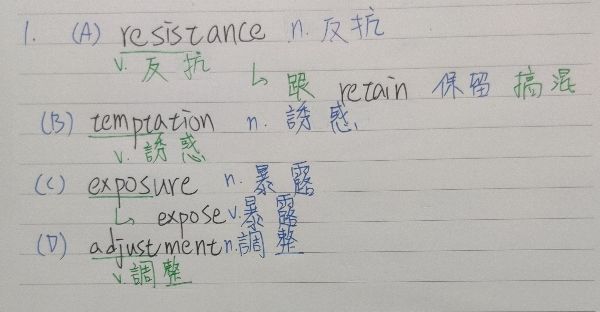 1. (A) resistance n. 反抗
v. 反抗
↳ 跟 retain 保留 搞混
(B) temptation n. 誘惑
v. 誘惑
(C) exposure n. 暴露
↳ expose v. 暴露
(D) adjustment n. 調整
v. 調整